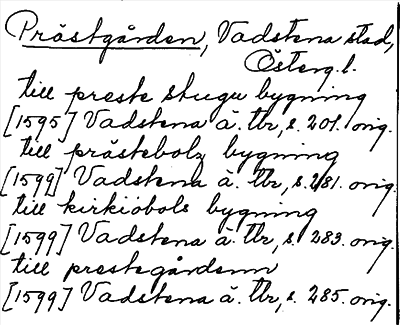 Prästgården, Vadstena stad,
Österg. l.
till preste stugu bygning
[1595] Vadstena ä. tbr, s. 201. orig.
till prästebolz bygning
[1599] Vadstena ä. tbr, s. 281. orig.
till kirkiobols bygning
[1599] Vadstena ä. tbr, s. 283. orig.
till prestegårdenn
[1599] Vadstena ä. tbr, s. 285. orig.